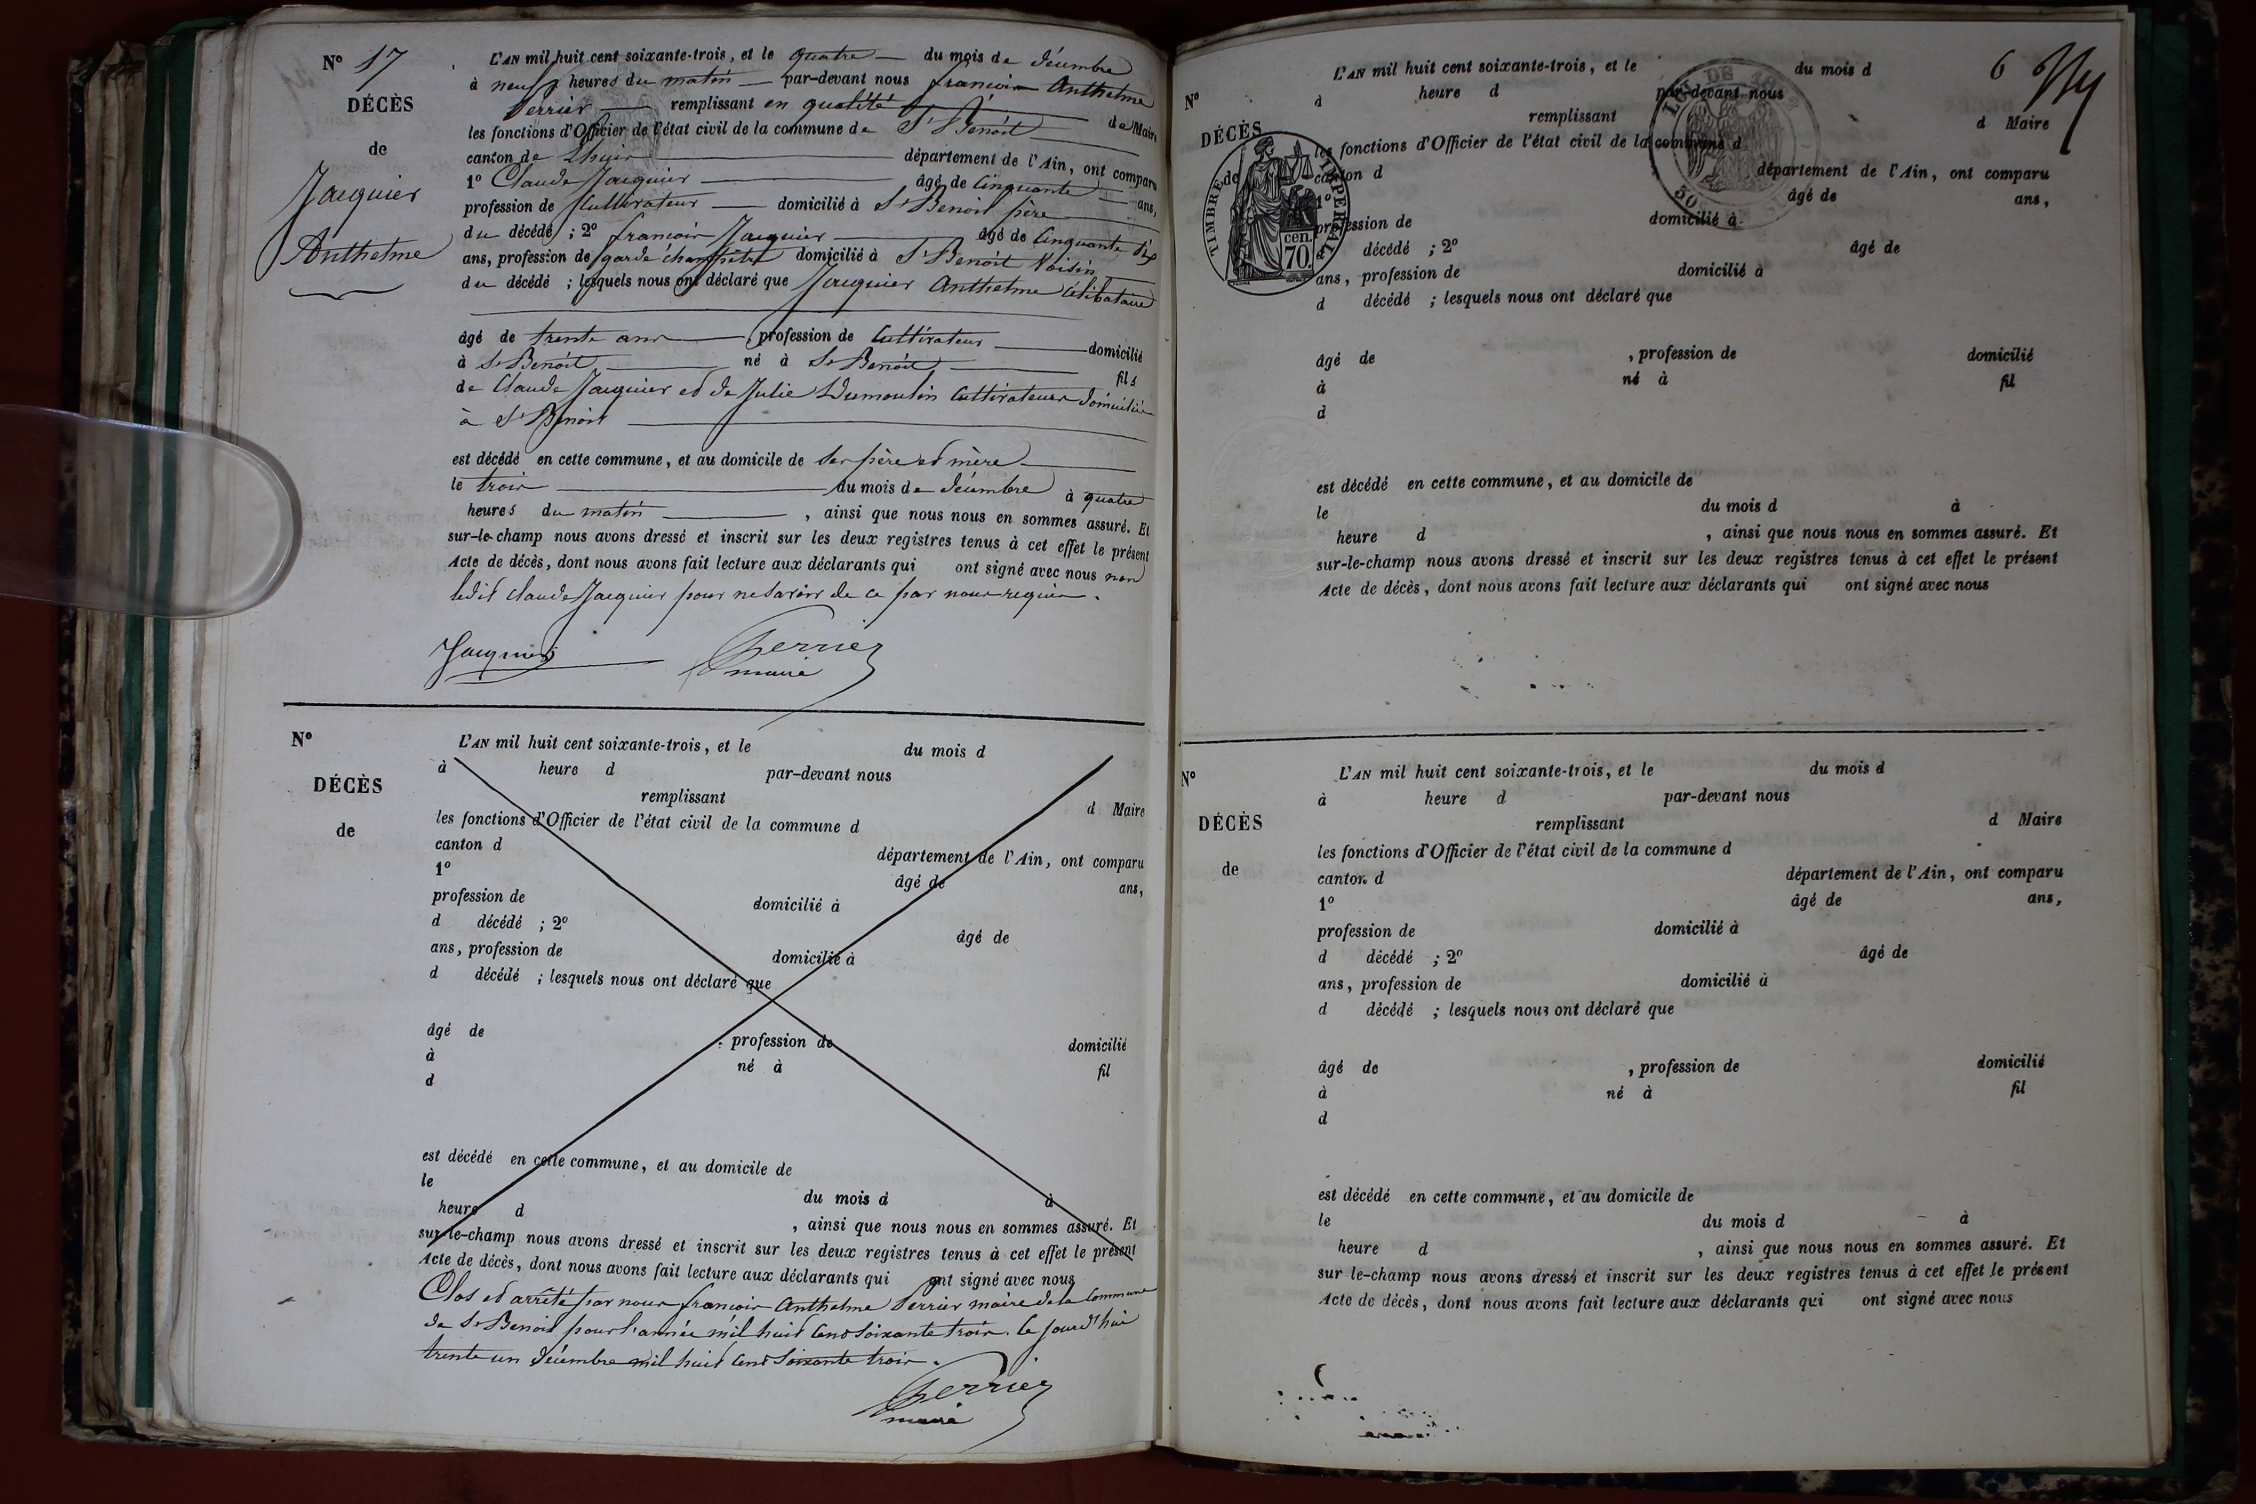 N° 17
DÉCÈS
de
Jacquier
Anthelme
L'AN mil huit cent soixante-trois, et le quatre du mois de décembre
à neuf heures du matin par-devant nous françois Anthelme
Perrier remplissant en qualité de Maire
les fonctions d'Officier de l'état civil de la commune de St Benoit
canton de Lhuis département de l'Ain, ont comparu
1° Claude Jacquier âgé de Cinquante ans,
profession de Cultivateur domicilié à St Benoit père
du décédé ; 2° françois Jacquier âgé de Cinquante six
ans, profession de garde champêtre domicilié à St Benoit Voisin
du décédé ; lesquels nous ont déclaré que Jacquier Anthelme Célibataire
âgé de trente ans profession de Cultivateur domicilié
à St Benoit né à St Benoit fils
de Claude Jacquier et de Julie Dumoulin Cultivateurs domiciliés
à St Benoit
est décédé en cette commune, et au domicile de ses père et mère
le trois du mois de décembre à quatre
heures du matin , ainsi que nous nous en sommes assuré. Et
sur-le-champ nous avons dressé et inscrit sur les deux registres tenus à cet effet le présent
Acte de décès, dont nous avons fait lecture aux déclarants qui ont signé avec nous non
ledit Claude Jacquier pour ne savoir de ce par nous requis.
Jacquier Perrier
maire
N°
DÉCÈS
de
L'AN mil huit cent soixante-trois, et le du mois d
à heure d par-devant nous
remplissant d Maire
les fonctions d'Officier de l'état civil de la commune d
canton d département de l'Ain, ont comparu
1° âgé de ans,
profession de domicilié à
d décédé ; 2° âgé de
ans, profession de domicilié à
d décédé ; lesquels nous ont déclaré que
âgé de , profession de domicilié
à né à fil
d
est décédé en cette commune, et au domicile de
le du mois d à
heure d , ainsi que nous nous en sommes assuré. Et
sur-le-champ nous avons dressé et inscrit sur les deux registres tenus à cet effet le présent
Acte de décès, dont nous avons fait lecture aux déclarants qui ont signé avec nous
Clos et arrêté par nous françois Anthelme Perrier maire de la Commune
de St Benoit pour l'année mil huit Cent Soixante trois. Ce jourd'hui
trente un décembre mil huit Cent Soixante trois.
Perrier
maire
6
N°
DÉCÈS
de
TIMBRE IMPERIAL
70 cen.
50
L'AN mil huit cent soixante-trois, et le du mois d
à heure d par-devant nous
remplissant d Maire
les fonctions d'Officier de l'état civil de la commune d
canton d département de l'Ain, ont comparu
1° âgé de ans,
profession de domicilié à
décédé ; 2° âgé de
ans, profession de domicilié à
d décédé ; lesquels nous ont déclaré que
âgé de , profession de domicilié
à né à fil
d
est décédé en cette commune, et au domicile de
le du mois d à
heure d , ainsi que nous nous en sommes assuré. Et
sur-le-champ nous avons dressé et inscrit sur les deux registres tenus à cet effet le présent
Acte de décès, dont nous avons fait lecture aux déclarants qui ont signé avec nous
N°
DÉCÈS
de
L'AN mil huit cent soixante-trois, et le du mois d
à heure d par-devant nous
remplissant d Maire
les fonctions d'Officier de l'état civil de la commune d
canton d département de l'Ain, ont comparu
1° âgé de ans,
profession de domicilié à
d décédé ; 2° âgé de
ans, profession de domicilié à
d décédé ; lesquels nous ont déclaré que
âgé de , profession de domicilié
à né à fil
d
est décédé en cette commune, et au domicile de
le du mois d à
heure d , ainsi que nous nous en sommes assuré. Et
sur le-champ nous avons dressé et inscrit sur les deux registres tenus à cet effet le présent
Acte de décès, dont nous avons fait lecture aux déclarants qui ont signé avec nous